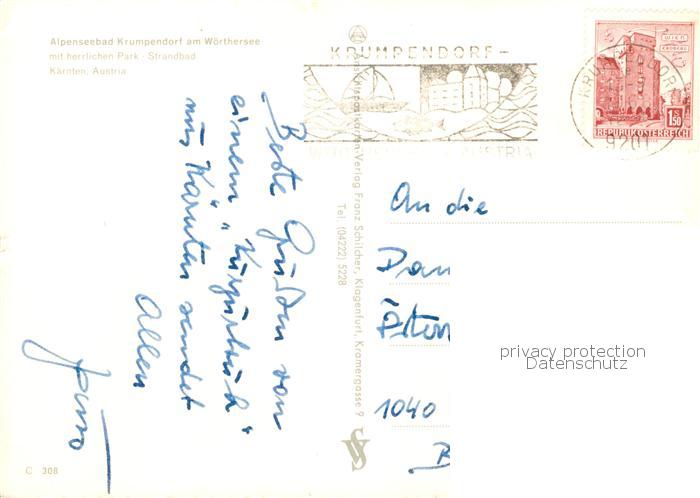 Alpenseebad Krumpendorf am Wörthersee
mit herrlichen Park - Strandbad
Kärnten, Austria
KRUMPENDORF-
AUSTRIA
WIEN
REPUBLIK ÖSTERREICH
S
1.50
9201
Beste Grüße von
einem "
aus Kärnten sendet
Allen
Verlag Franz Schilcher, Klagenfurt, Kramergasse 9
Tel. (04222) 5228
An die
1040
privacy protection
Datenschutz
C 308